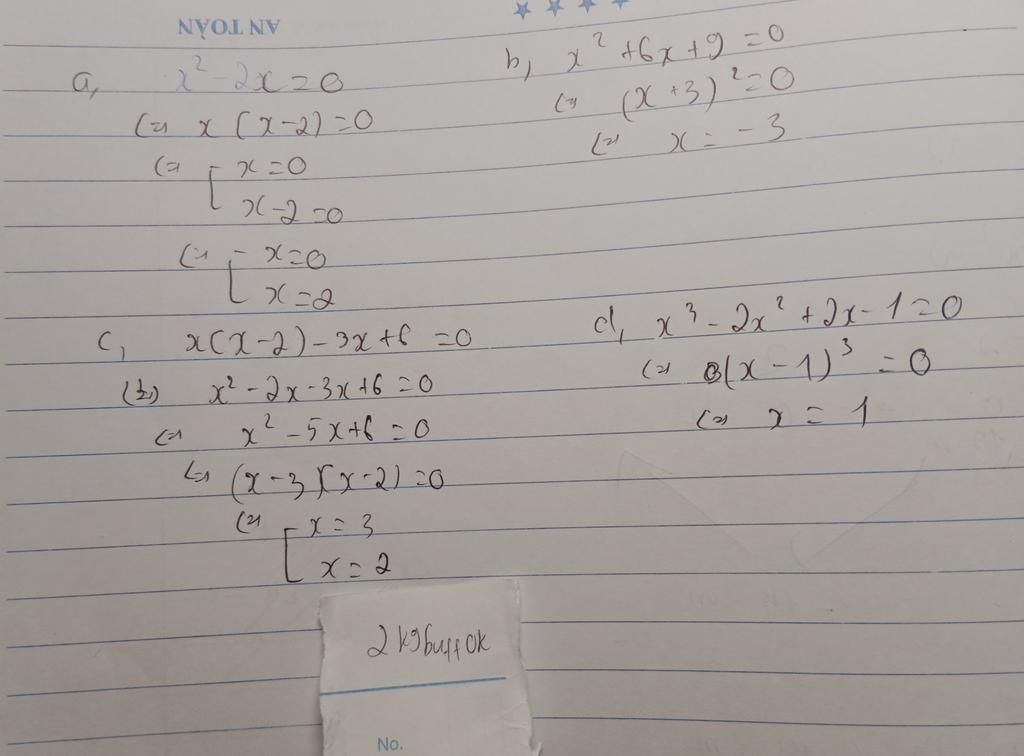 AN TOÀN
a, x² - 2x = 0
<=> x (x-2) = 0
<=> [ x = 0
x - 2 = 0
<=> [ x = 0
x = 2
b, x² + 6x + 9 = 0
<=> (x+3)² = 0
<=> x = -3
c, x(x-2) - 3x + 6 = 0
<=> x² - 2x - 3x + 6 = 0
<=> x² - 5x + 6 = 0
<=> (x-3)(x-2) = 0
<=> [ x = 3
x = 2
d, x³ - 2x² + 2x - 1 = 0
<=> (x-1)³ = 0
<=> x = 1
2kgbuffok
No.